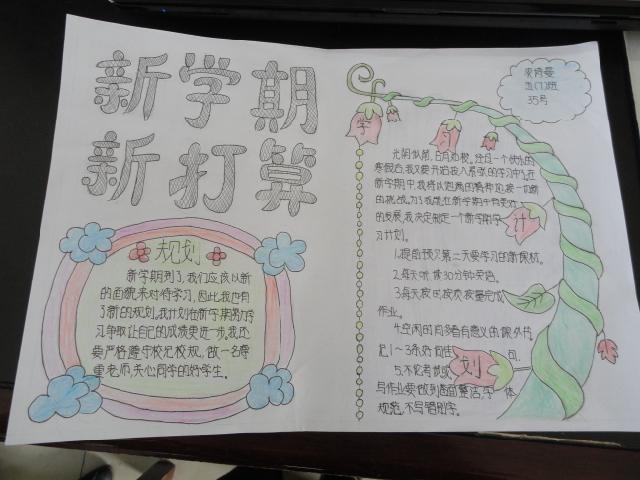 新学期
新打算
规划
新学期到了，我们应该以新
的面貌来对待学习，因此，我也有
了新的规划。我计划在新学期努力学
习，争取让自己的成绩更进一步。我还
要严格遵守校纪校规，做一名尊
重老师，关心同学的好学生。
五(7)班
35号
学
习
计
划
光阴似箭，日月如梭。经过一个愉快的
寒假后，我又要开始投入紧张的学习中了。在
新学期中，我将以饱满的精神迎接一切新
的挑战。为了我能在新学期中有更好
的发展，我决定制定一个新学期学
习计划。
1.提前预习第二天要学习的新课标。
2.每天听读30分钟英语。
3.每天按时按质按量完成
作业。
4.空闲时间多看有意义的课外书，
记1～3条好词佳句。
5.不论考试或
与作业要做到书面整洁，字体
规范，不写错别字。